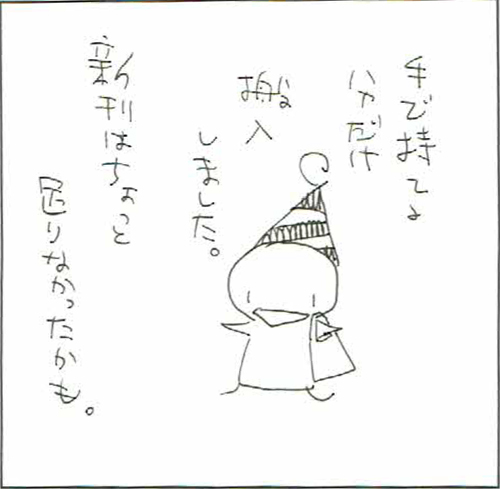 手で持てる
分だけ
搬入
しました。
新刊はちょっと
足りなかったかも。